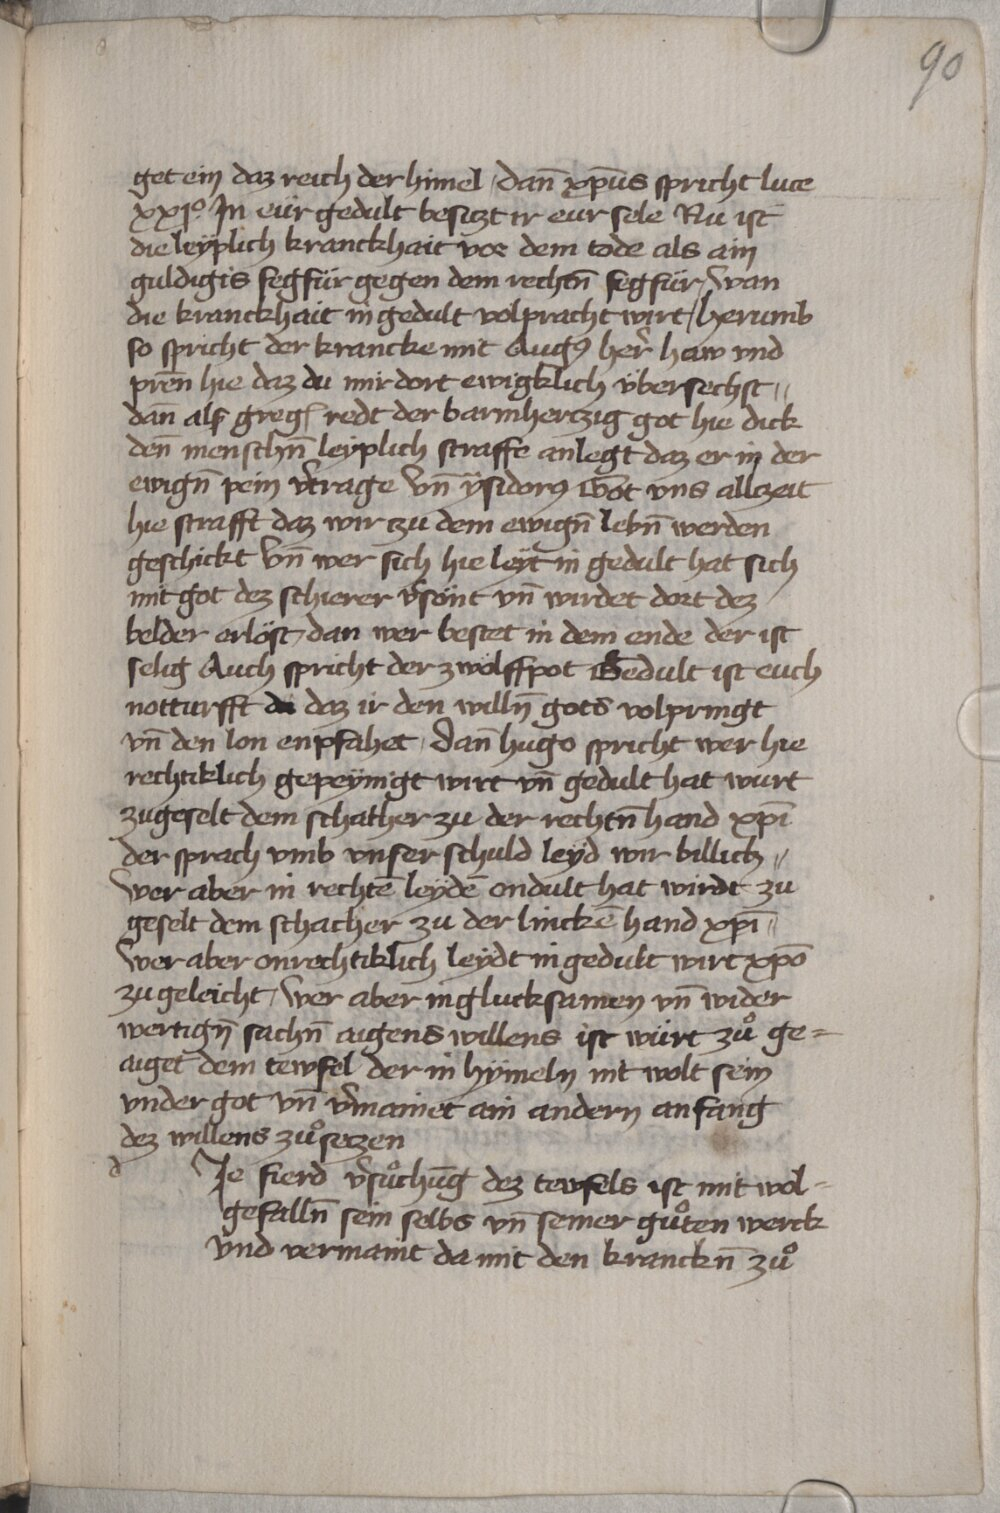 90
get ein daz reich der himel / dan̄ xp̄us spricht luce
xxjº In eür gedult besiczt ir eur sele Nu ist
die leÿplich kranckhait vor dem tode als ain
guldigis fegfür gegen dem rechtn̄ fegfür / wan
die kranckhait in gedult volpracht wirt / herumb
so spricht der krancke mit Augꝰ her̄ haw vnd
pren̄ hie daz du mir dort ewigklich übersechst //
dan̄ als greḡ redt der barmherczig got hie dick
den̄ menschn̄ leÿplich straffe anlegt daz er in der
ewign̄ pein v̄trage vn̄ ÿsidorꝰ Got vns allczeit
hie strafft daz wir zu dem ewign̄ lebn̄ werden
geschickt vn̄ wer sich hie leÿt in gedult hat sich
mit got dez schierer v̄sönt vn̄ wirdet dort dez
belder erlöst / dan wer bestet in dem ende der ist
selig Auch spricht der zwölffpot Gedult ist euch
notturfft daz ir den willn̄ gots volpringt
vn̄ den lon enpfahet / dan̄ hugo spricht wer hie
rechtiklich gepeÿnigt wirt vn̄ gedult hat wurt
zugeselt dem schather zu der rechtn̄ hand xp̄i
der sprach vmb vnser schuld leÿd wir billich //
wer aber in rechtē leÿdē ondult hat wirdt zu
geselt dem schacher zu der linckē hand xp̄i //
wer aber onrechtiklich leÿdt in gedult wirt xp̄o
zugeleicht / wer aber in glucksamen vn̄ wider
wertign̄ sachn̄ aigens willens ist würt zů ge=
aiget dem tewfel der in hÿmeln nit wolt sein
vnder got vn̄ v̄mainet ain andern anfang
dez willens zůseczen
d
Je fierd v̄sůchūg dez tewfels ist mit wol=
gefalln̄ sein selbs vn̄ seiner gůten werck
vnd vermaint da mit den kranckn̄ zů